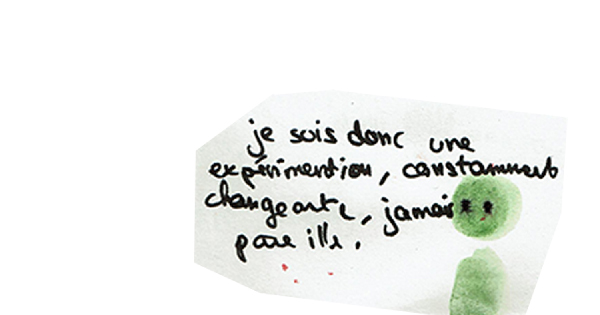 je suis donc une
expérimention, constamment
changeante, jamais
pareille.